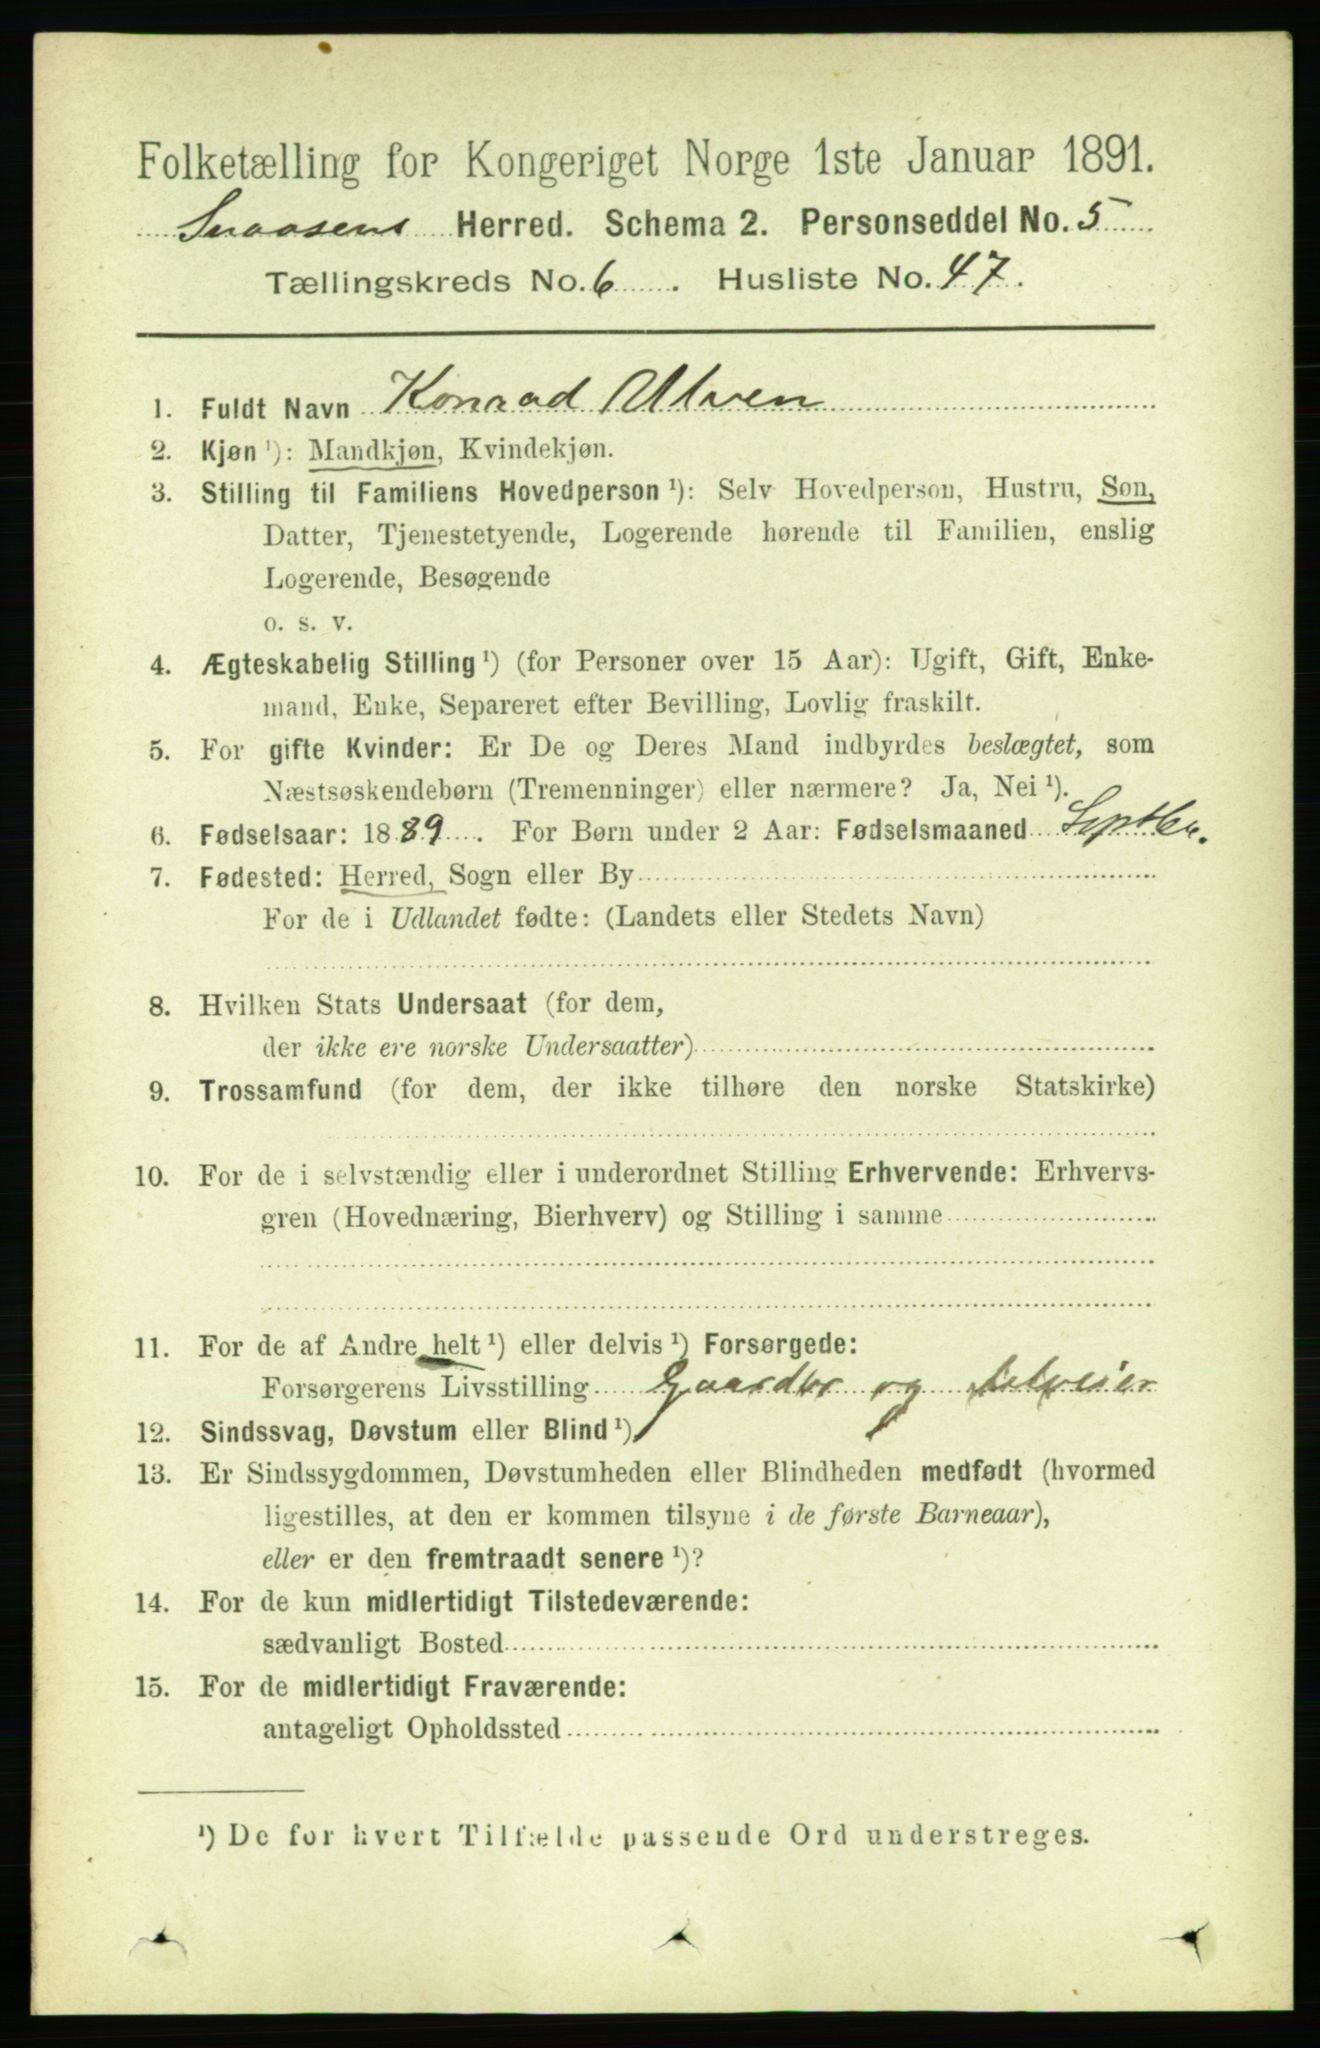 Folketælling for Kongeriget Norge 1ste Januar 1891.
Snaasens Herred. Schema 2. Personseddel No. 5
Tællingskreds No. 6. Husliste No. 47.
1. Fuldt Navn Konrad Ulven
2. Kjøn ¹): Mandkjøn, Kvindekjøn.
3. Stilling til Familiens Hovedperson ¹): Selv Hovedperson, Hustru, Søn,
Datter, Tjenestetyende, Logerende hørende til Familien, enslig
Logerende, Besøgende
o. s. v.
4. Ægteskabelig Stilling ¹) (for Personer over 15 Aar): Ugift, Gift, Enke-
mand, Enke, Separeret efter Bevilling, Lovlig fraskilt.
5. For gifte Kvinder: Er De og Deres Mand indbyrdes beslægtet, som
Næstsøskendebørn (Tremenninger) eller nærmere? Ja, Nei ¹).
6. Fødselsaar: 1889. For Børn under 2 Aar: Fødselsmaaned Septbr.
7. Fødested: Herred, Sogn eller By
For de i Udlandet fødte: (Landets eller Stedets Navn)
8. Hvilken Stats Undersaat (for dem,
der ikke ere norske Undersaatter)
9. Trossamfund (for dem, der ikke tilhøre den norske Statskirke)
10. For de i selvstændig eller i underordnet Stilling Erhvervende: Erhvervs-
gren (Hovednæring, Bierhverv) og Stilling i samme
11. For de af Andre helt ¹) eller delvis ¹) Forsørgede:
Forsørgerens Livsstilling Gaardbr og selveier
12. Sindssvag, Døvstum eller Blind ¹)
13. Er Sindssygdommen, Døvstumheden eller Blindheden medfødt (hvormed
ligestilles, at den er kommen tilsyne i de første Barneaar),
eller er den fremtraadt senere ¹)?
14. For de kun midlertidigt Tilstedeværende:
sædvanligt Bosted
15. For de midlertidigt Fraværende:
antageligt Opholdssted
¹) De for hvert Tilfælde passende Ord understreges.